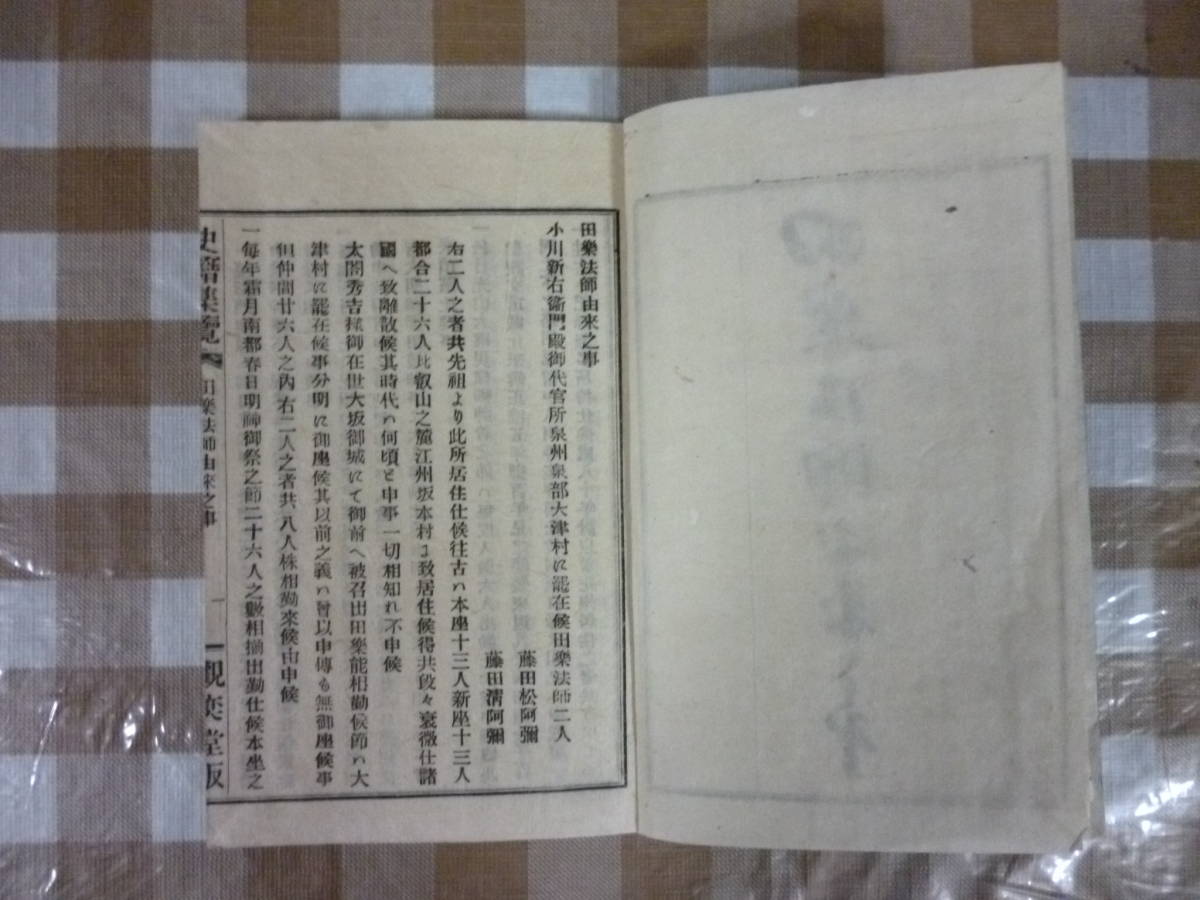 田樂法師由來之事
小川新右衞門殿御代官所泉州泉部大津村ニ罷在候田樂法師二人
藤田松阿彌
藤田淸阿彌
右二人之者共先祖より此所居住仕候往古ハ本座十三人新座十三人
都合二十六人比叡山之麓江州坂本村ニ致居住候得共段々衰微仕諸
國ヘ致離散候其時代ハ何頃と申事一切相知れ不申候
太閤秀吉樣御在世大坂御城にて御前ヘ被召出田樂能相勤候節ハ大
津村ニ罷在候事分明ニ御座候其以前之義ハ曾以申傳も無御座候事
但仲間廿六人之內右二人之者共八人株相勤來候由申候
一每年霜月南都春日明神御祭之節二十六人之數相揃出勤仕候本座之
史籍集覽 田樂法師由來之事 一 觀奕堂版